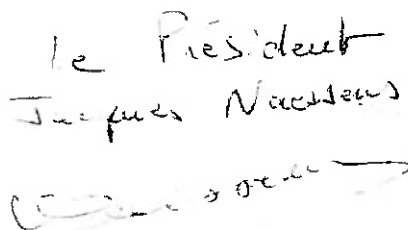 Le Président
Jacques Naessens